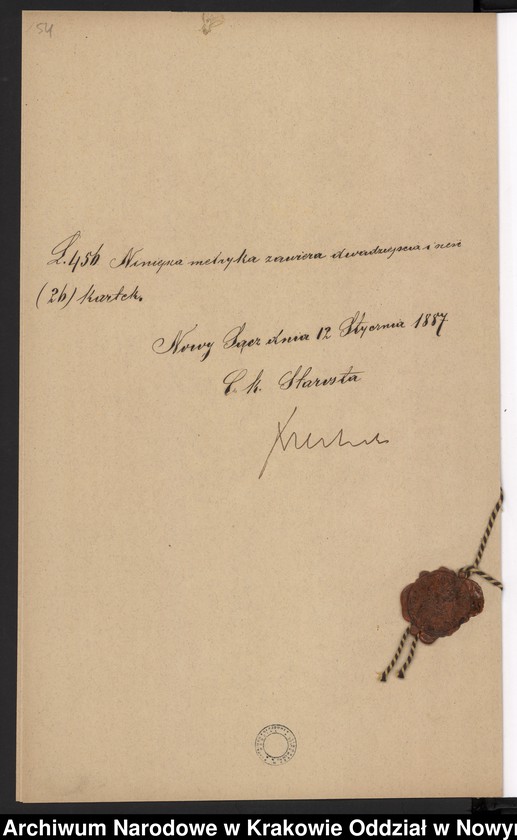 54
L. 456 Niniejsza metryka zawiera dwadzieścia i sześć
(26) kartek.
Nowy Sącz dnia 12 Stycznia 1887
C. k. Starosta
Archiwum Narodowe w Krakowie Oddział w Nowy